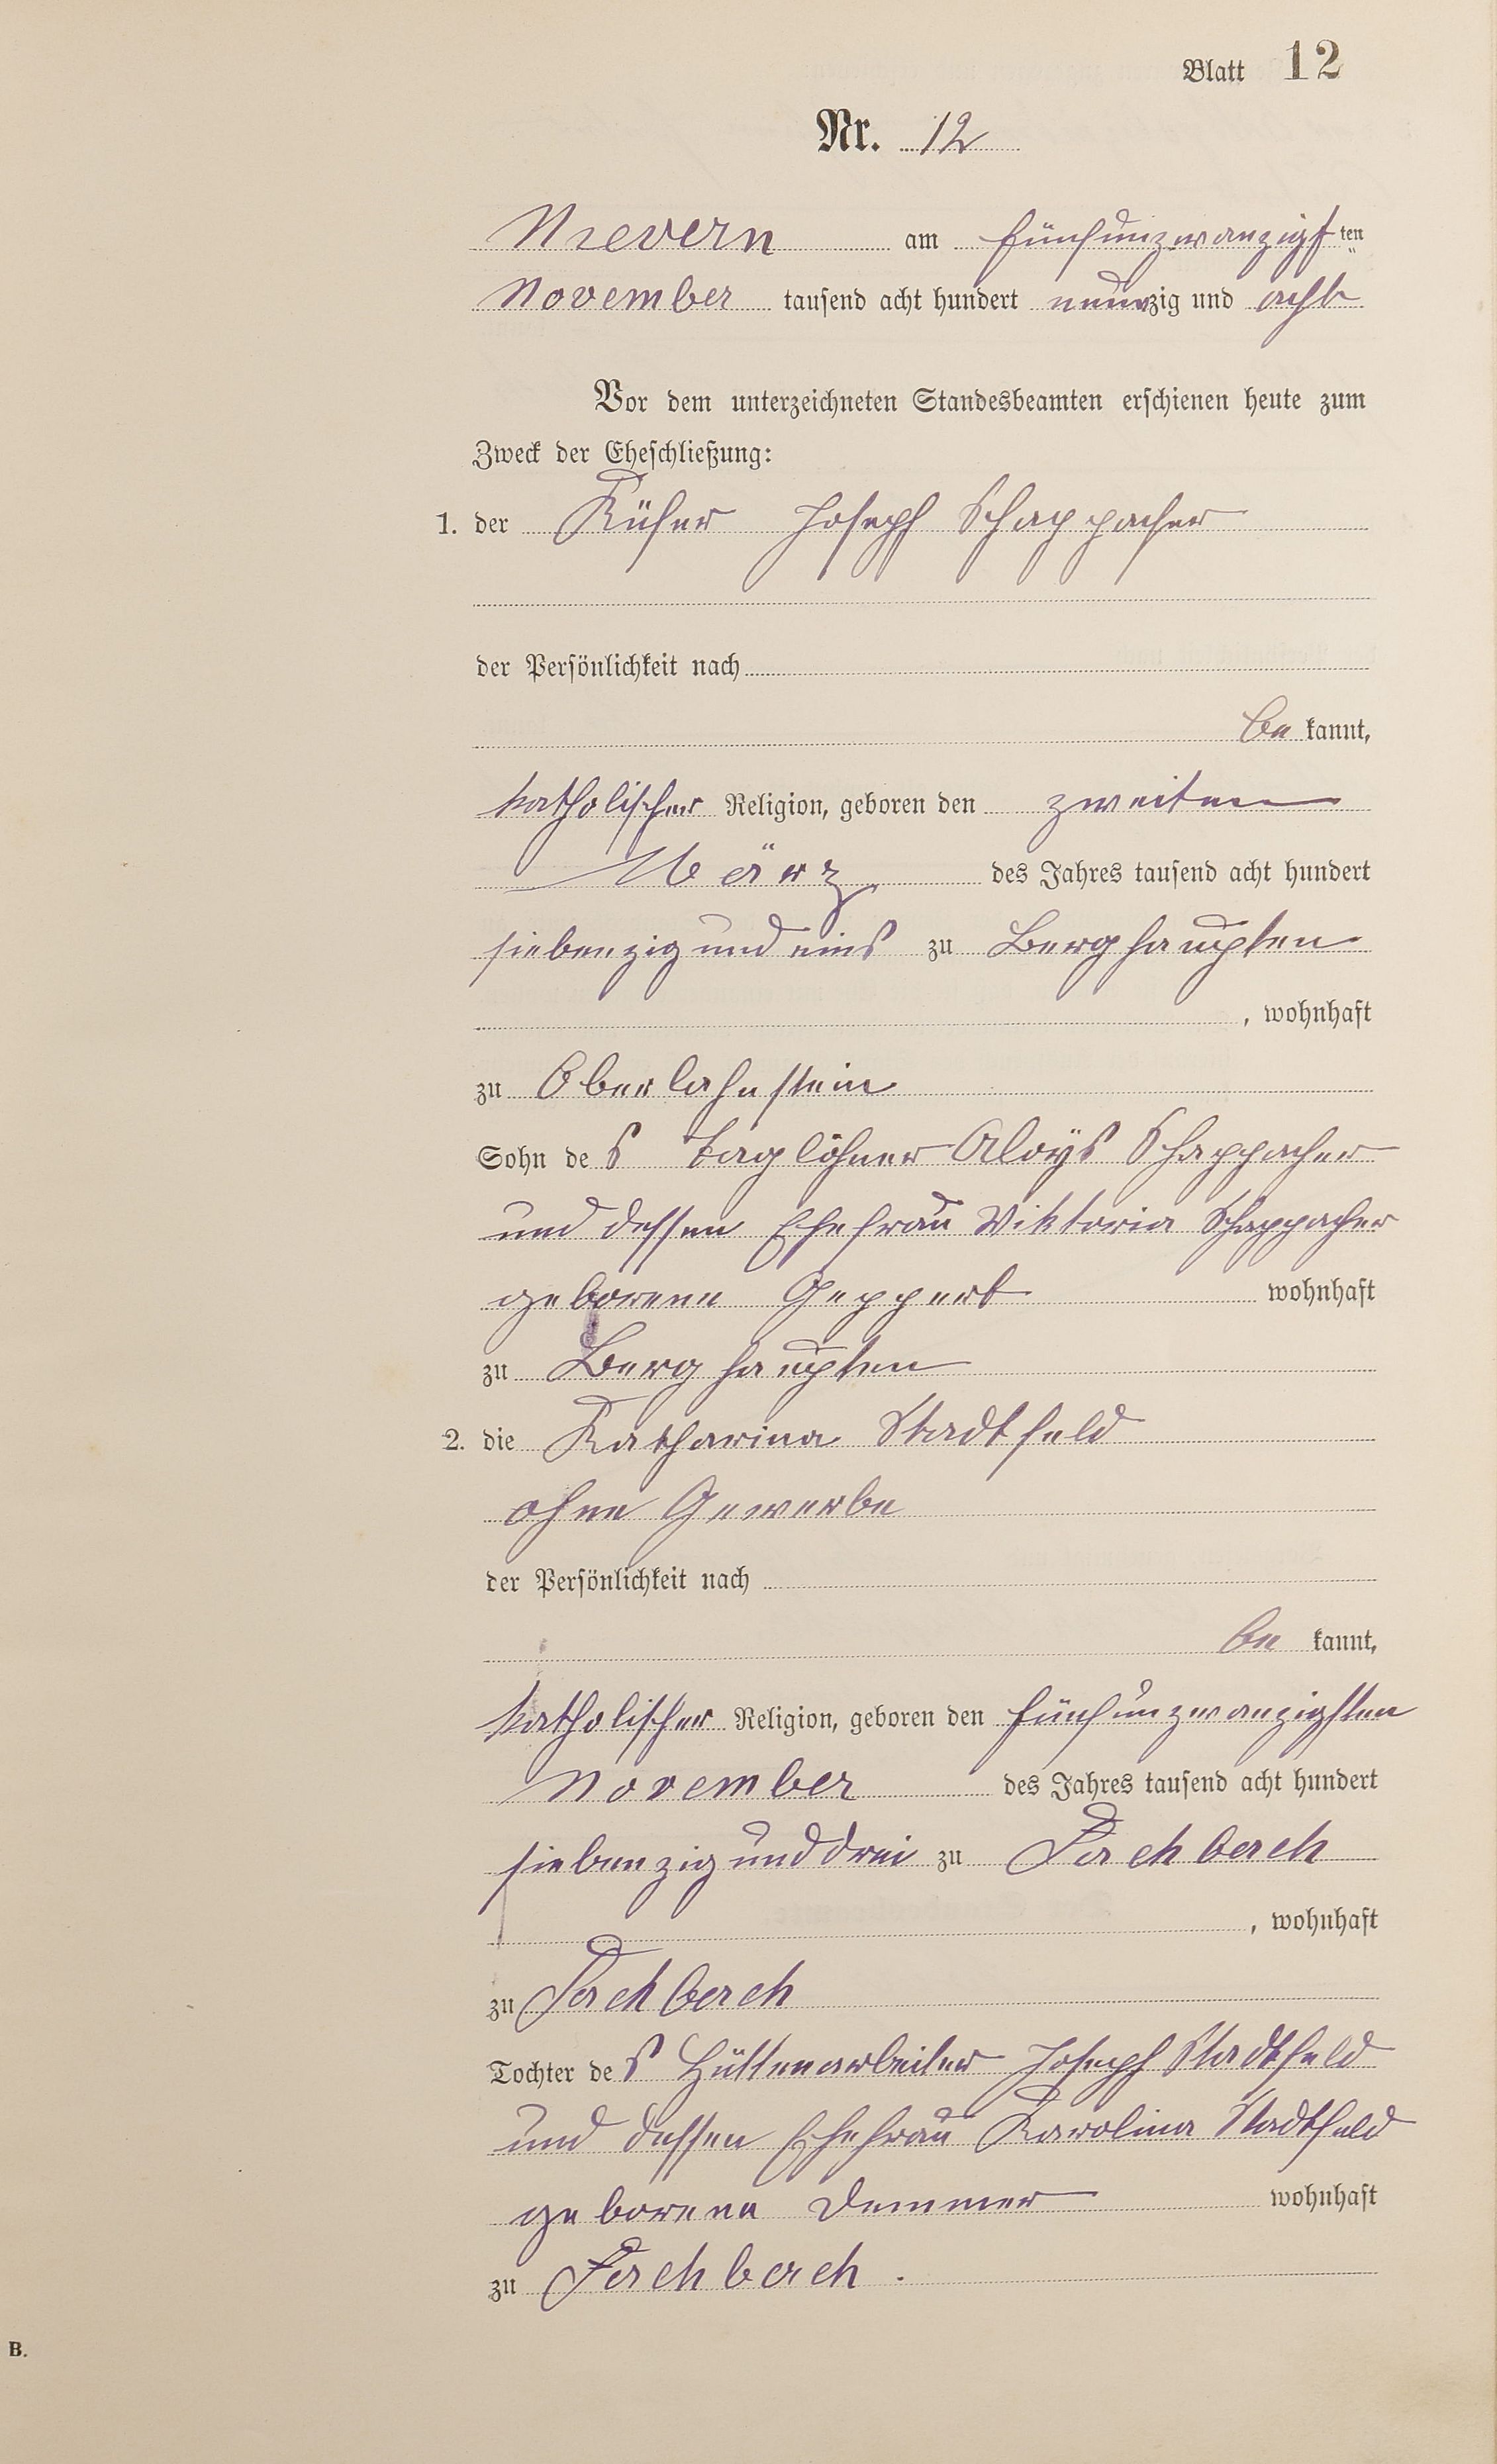 Blatt 12
Nr. 12
Nievern am fünfunzwanzigsten
November tausend acht hundert neunzig und acht
Vor dem unterzeichneten Standesbeamten erschienen heute zum
Zweck der Eheschließung:
1. der Küfer Joseph Schappacher
der Persönlichkeit nach
be kannt,
katholischer Religion, geboren den zweiten
März des Jahres tausend acht hundert
siebenzig und eins zu Berghaupten
, wohnhaft
zu Oberlahnstein
Sohn des Taglöhner Aloÿs Schappacher
und dessen Ehefrau Viktoria Schappacher
geborene Geppert wohnhaft
zu Berghaupten
2. die Katharina Stadtfeld
ohne Gewerbe
der Persönlichkeit nach
be kannt,
katholischer Religion, geboren den fünfunzwanzigsten
November des Jahres tausend acht hundert
siebenzig und drei zu Fachbach
, wohnhaft
zu Fachbach
Tochter des Hüttenarbeiter Joseph Stadtfeld
und dessen Ehefrau Karolina Stadtfeld
geborene Demmer wohnhaft
zu Fachbach.
B.